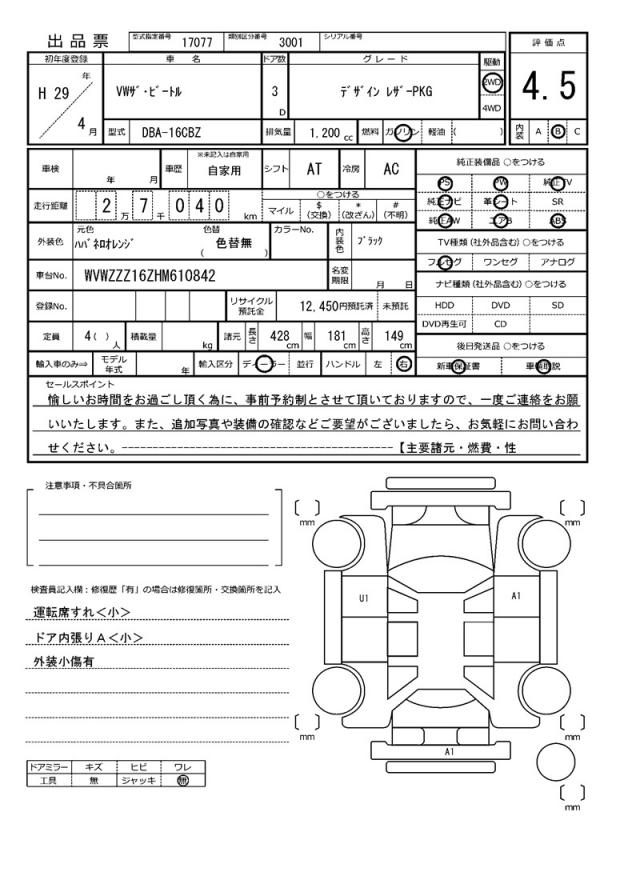 出品票 型式指定番号 17077 類別区分番号 3001 シリアル番号
評価点
4.5
内装 A B C
初年度登録 車名 ドア数 グレード 駆動
H 29 年 4 月
VWザ・ビートル 3 D デザイン レザーPKG 2WD 4WD
型式 DBA-16CBZ 排気量 1.200 cc 燃料 ガソリン 軽油 ( )
車検 年 月 車歴 ※未記入は自家用 自家用 シフト AT 冷房 AC
走行距離 2 万 7 千 0 4 0 km ○をつける
マイル $ (交換) * (改ざん) # (不明)
外装色 元色 ハバネロオレンジ 色替 ( 色替無 ) カラーNo. 内装色 ブラック
車台No. WVWZZZ16ZHM610842 名変期限 月 日
登録No. リサイクル預託金 12,450円預託済 未預託
定員 4( ) 人 積載量 kg 諸元 長さ 428 cm 幅 181 cm 高さ 149 cm
輸入車のみ⇒ モデル年式 年 輸入区分 ディーラー 並行 ハンドル 左 右
純正装備品 ○をつける
PS PW 純正TV
純正ナビ 革シート SR
純正AW エアB ABS
TV種類 (社外品含む) ○をつける
フルセグ ワンセグ アナログ
ナビ種類 (社外品含む) ○をつける
HDD DVD SD
DVD再生可 CD
後日発送品 ○をつける
新車保証書 車輌取説
セールスポイント
愉しいお時間をお過ごし頂く為に、事前予約制とさせて頂いておりますので、一度ご連絡をお願
いいたします。また、追加写真や装備の確認などご要望がございましたら、お気軽にお問い合わ
せください。----------------------------------------【主要諸元・燃費・性
注意事項・不具合箇所
検査員記入欄：修復歴「有」の場合は修復箇所・交換箇所を記入
運転席すれ＜小＞
ドア内張りＡ＜小＞
外装小傷有
ドアミラー キズ ヒビ ワレ
工具 無 ジャッキ 無
[ ] mm
[ ] mm
U1
A1
[ ] mm
[ ] mm
A1
[ ] mm